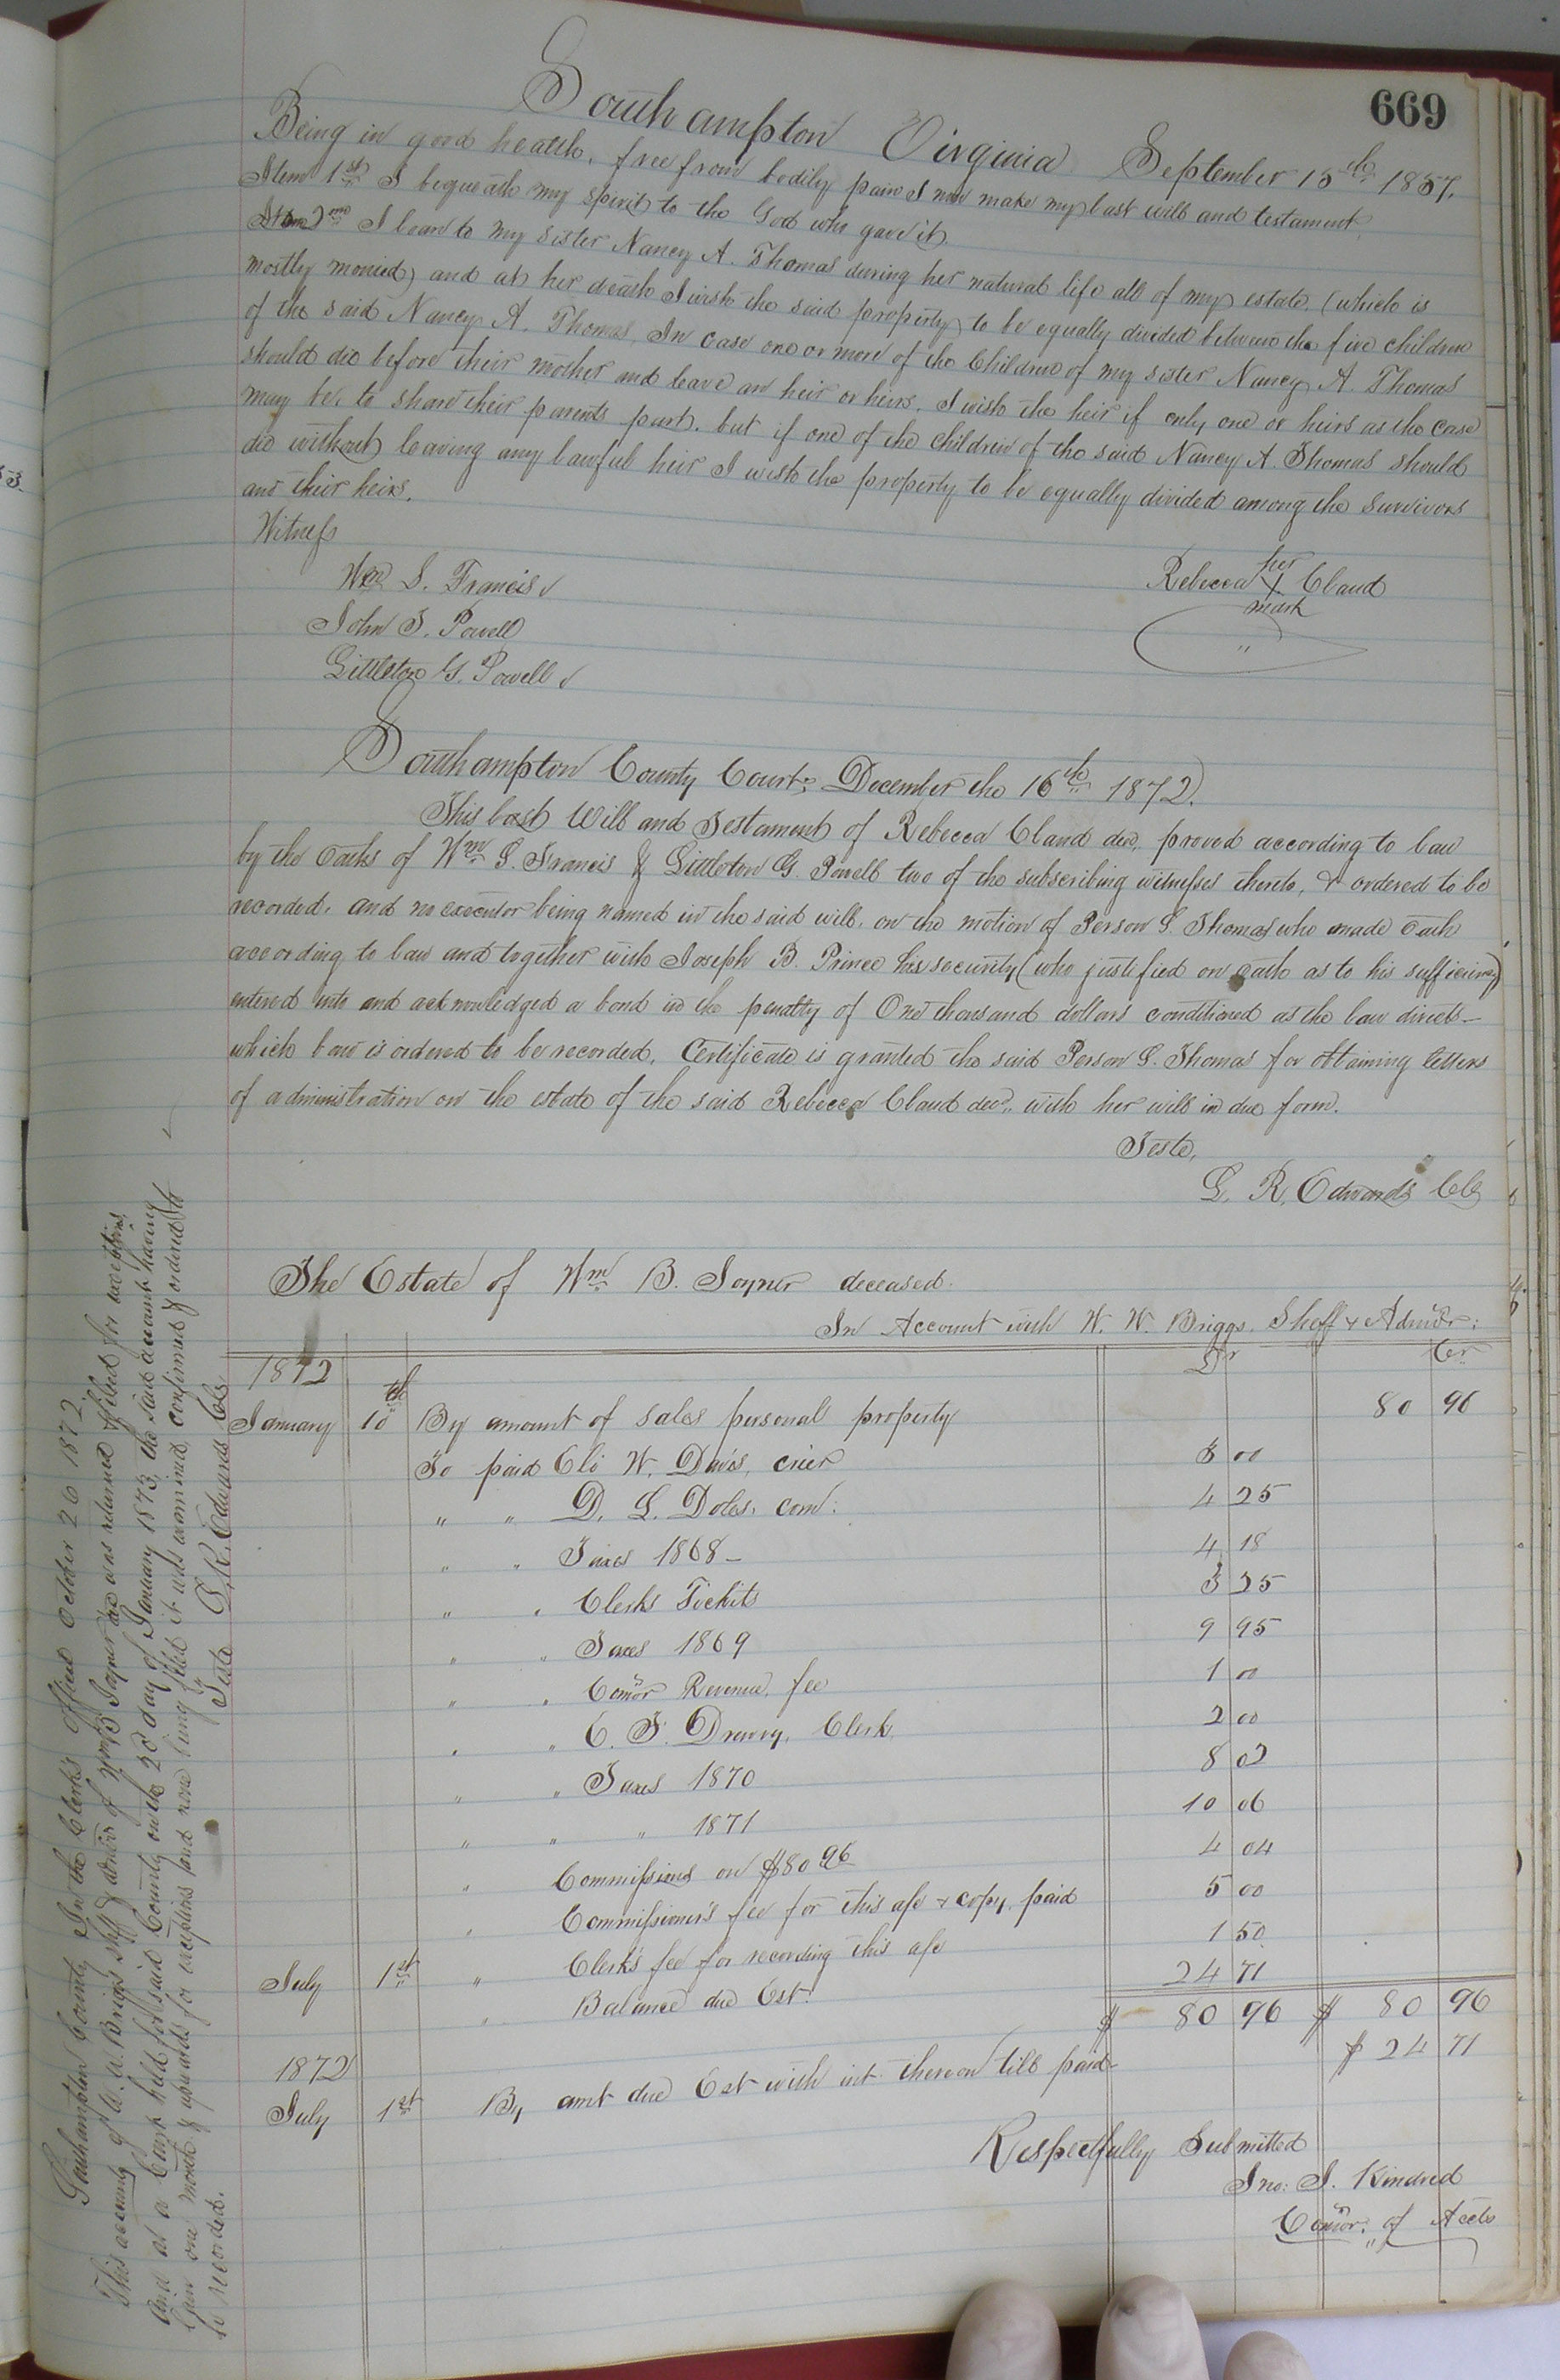 669
Southampton Virginia September 15th 1857.
Being in good health, free from bodily pain I now make my last will and testament
Item 1st I bequeath my spirit to the God who gave it
Item 2nd I loan to my sister Nancy A. Thomas during her natural life all of my estate, (which is
mostly monied) and at her death I wish the said property to be equally divided between the five children
of the said Nancy A. Thomas, In case one or more of the Children of my sister Nancy A. Thomas
should die before their mother and leave an heir or heirs, I wish the heir if only one or heirs as the case
may be, to share their parents part, but if one of the children of the said Nancy A Thomas should
die without leaving any lawful heir I wish the property to be equally divided among the survivors
and their heirs.
Witness
Wm S. Francis
John T. Powell
Littleton G. Powell
her
Rebecca X Claud
mark
Southampton County Court: December the 16th 1872.
This last Will and Testament of Rebecca Claud decd, proved according to law
by the oaths of Wm S. Francis & Littleton G. Powell two of the subscribing witnesses thereto, & ordered to be
recorded, and no executor being named in the said will, on the motion of Person S. Thomas who made oath
according to law and together with Joseph B. Prince his security (who justified on oath as to his sufficiency)
entered into and acknowledged a bond in the penalty of One thousand dollars conditioned as the law directs-
which bond is ordered to be recorded, Certificate is granted the said Person S. Thomas for obtaining letters
of administration on the estate of the said Rebecca Claud decd. with her will in due form.
Teste,
L. R. Edwards Clk
The Estate of Wm B. Joyner deceased.
In Account with W. W. Briggs, Shff & Admor:
1872 Dr Cr
January 10th By amount of sales personal property 80 96
To paid Eli W. Davis, crier 3 00
" " D. L. Doles, com: 4 25
" " Taxes 1868 - 4 18
" " Clerks Tickets 3 25
" " Taxes 1869 9 95
" " Comor Revenue, fee 1 00
" " C. F. Drewry, Clerk 2 00
" " Taxes 1870 8 02
" " " 1871 10 06
" Commissions on $80 96 4 04
" Commissioner's fee for this a/c & copy, paid 5 00
July 1st " Clerk's fee for recording this a/c 1 50
" Balance due Est: 24 71
$ 80 96 $ 80 96
1872
July 1st By amt due Est with int. thereon till paid $ 24 71
Respectfully Submitted
Jno: J. Kindred
Comor. of Accts
Southampton County In the Clerk's Office October 26 1872.
This account of W. W. Briggs shff & admor of Wm B Joyner decd was returned & filed for exceptions,
And at a Court held for said County on the 20 day of January 1873, the said account having
lain one month & upwards for exceptions and none being filed it was examined, confirmed & ordered
to be recorded.
Teste L. R. Edwards Clk